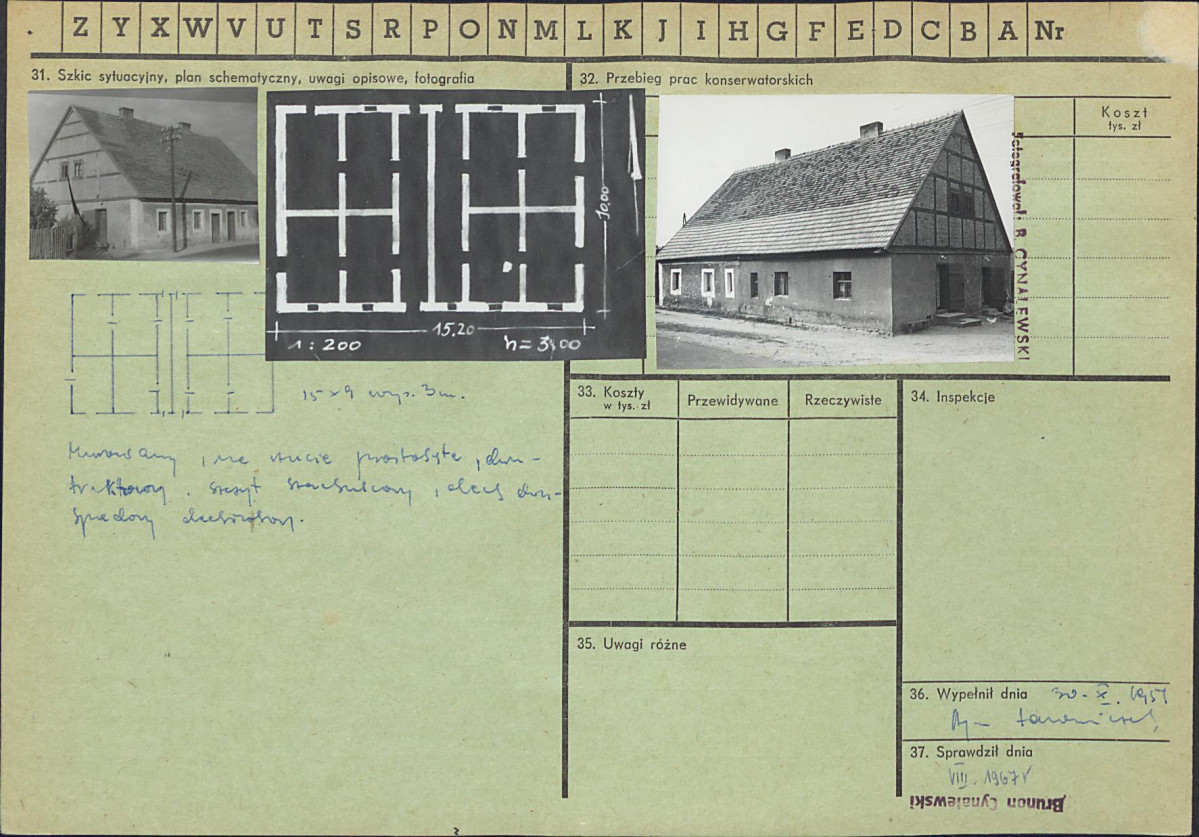 . Z Y X W V U T S R P O N M L K J I H G F E D C B A Nr
31. Szkic sytuacyjny, plan schematyczny, uwagi opisowe, fotografia
32. Przebieg prac konserwatorskich
Koszt
tys. zł
fotografował: B. CYNALEWSKI
10,00
15,20
1 : 200
h = 3,00
15 x 9 wys. 3 m.
Murowany, na rzucie prostokąta, dwu-
traktowy. Szczyt szachulcowy, dach dwu-
spadowy
33. Koszty
w tys. zł
Przewidywane
Rzeczywiste
34. Inspekcje
35. Uwagi różne
36. Wypełnił dnia 30. X. 1957
37. Sprawdził dnia
VIII. 1967 r
Brunon Cynalewski